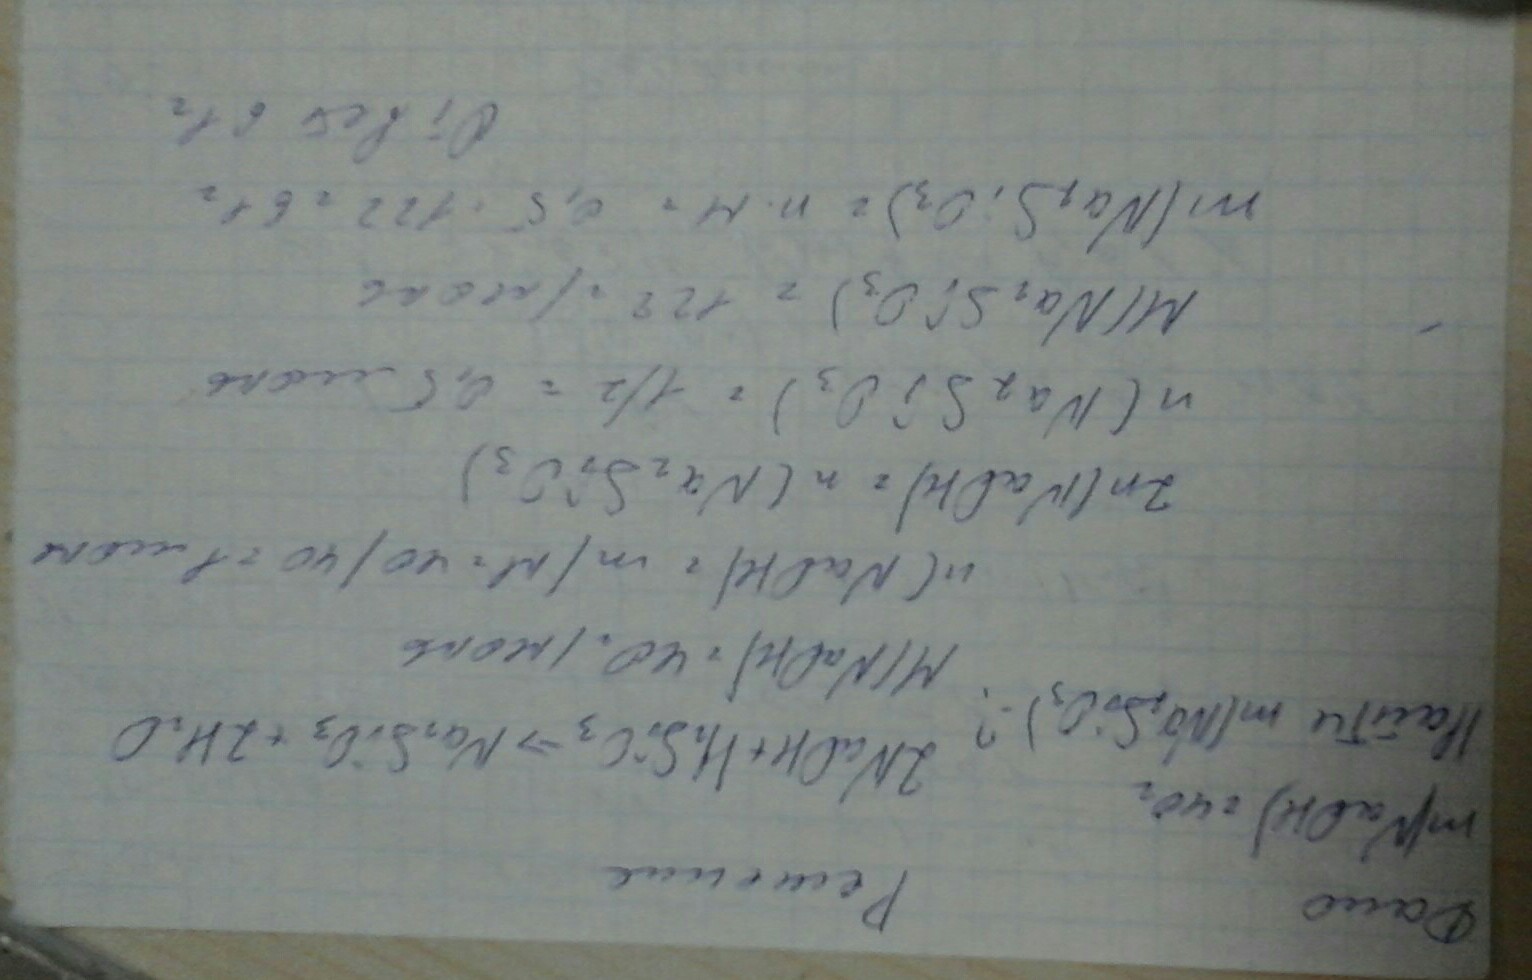 Дано
Решение
m(NaOH)=40г
Найти m(Na2SiO3)-?
2NaOH+H2SiO3⇒Na2SiO3+2H2O
M(NaOH)=40г/моль
n(NaOH)=m/M=40/40=1моль
2n(NaOH)=n(Na2SiO3)
n(Na2SiO3)=1/2=0,5моль
M(Na2SiO3)=122г/моль
m(Na2SiO3)=n·M=0,5·122=61г
Ответ 61г